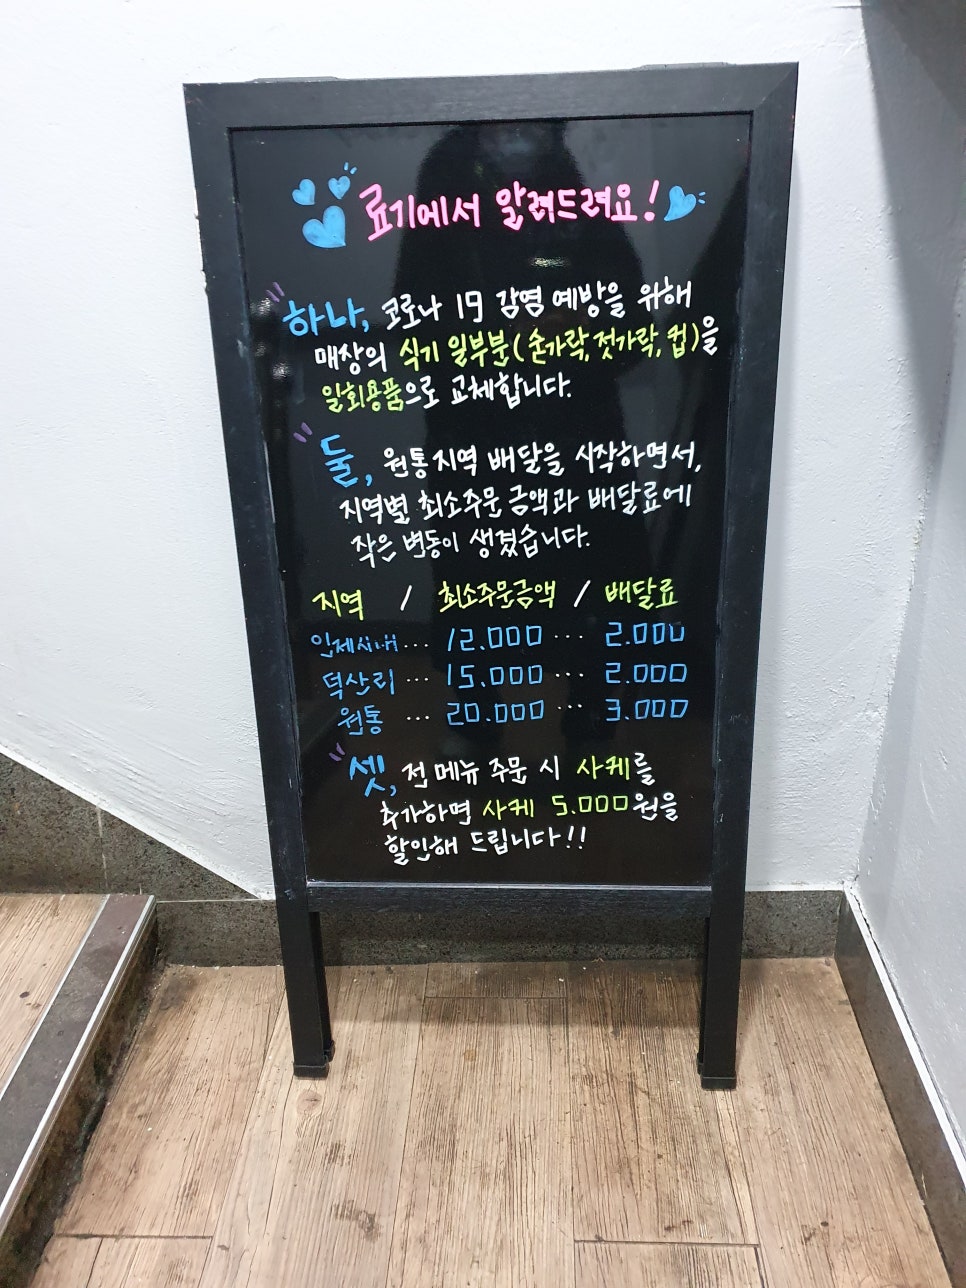 료기에서 알려드려요!
하나, 코로나 19 감염 예방을 위해
매상의 식기 일부분(손가락,젓가락,컵)을
일회용품으로 교체합니다.
둘, 원통지역 배달을 시작하면서,
지역별 최소주문금액과 배달료에
작은 변동이 생겼습니다.
지역 / 최소주문금액 / 배달료
인제시내 ··· 12.000 ··· 2.000
덕산리 ··· 15.000 ··· 2.000
원통 ··· 20.000 ··· 3.000
셋, 전메뉴 주문 시 사케를
추가하면 사케 5.000원을
할인해 드립니다!!